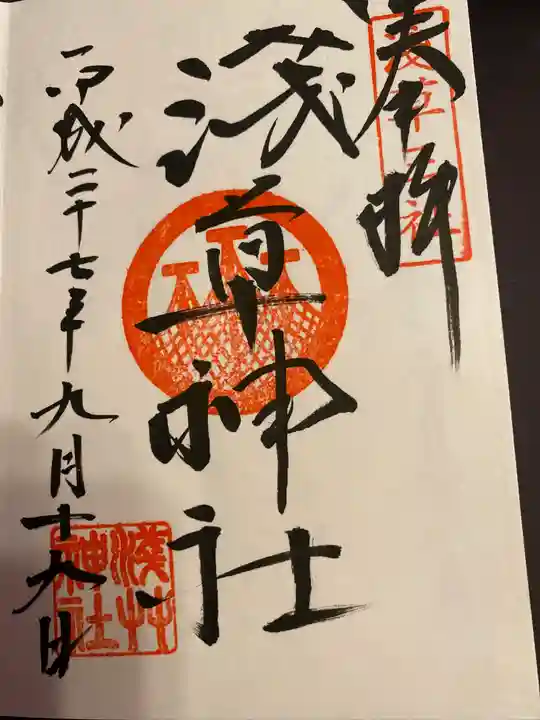 奉拝
浅草三社
浅草神社
平成二十七年九月十九日
浅草神社